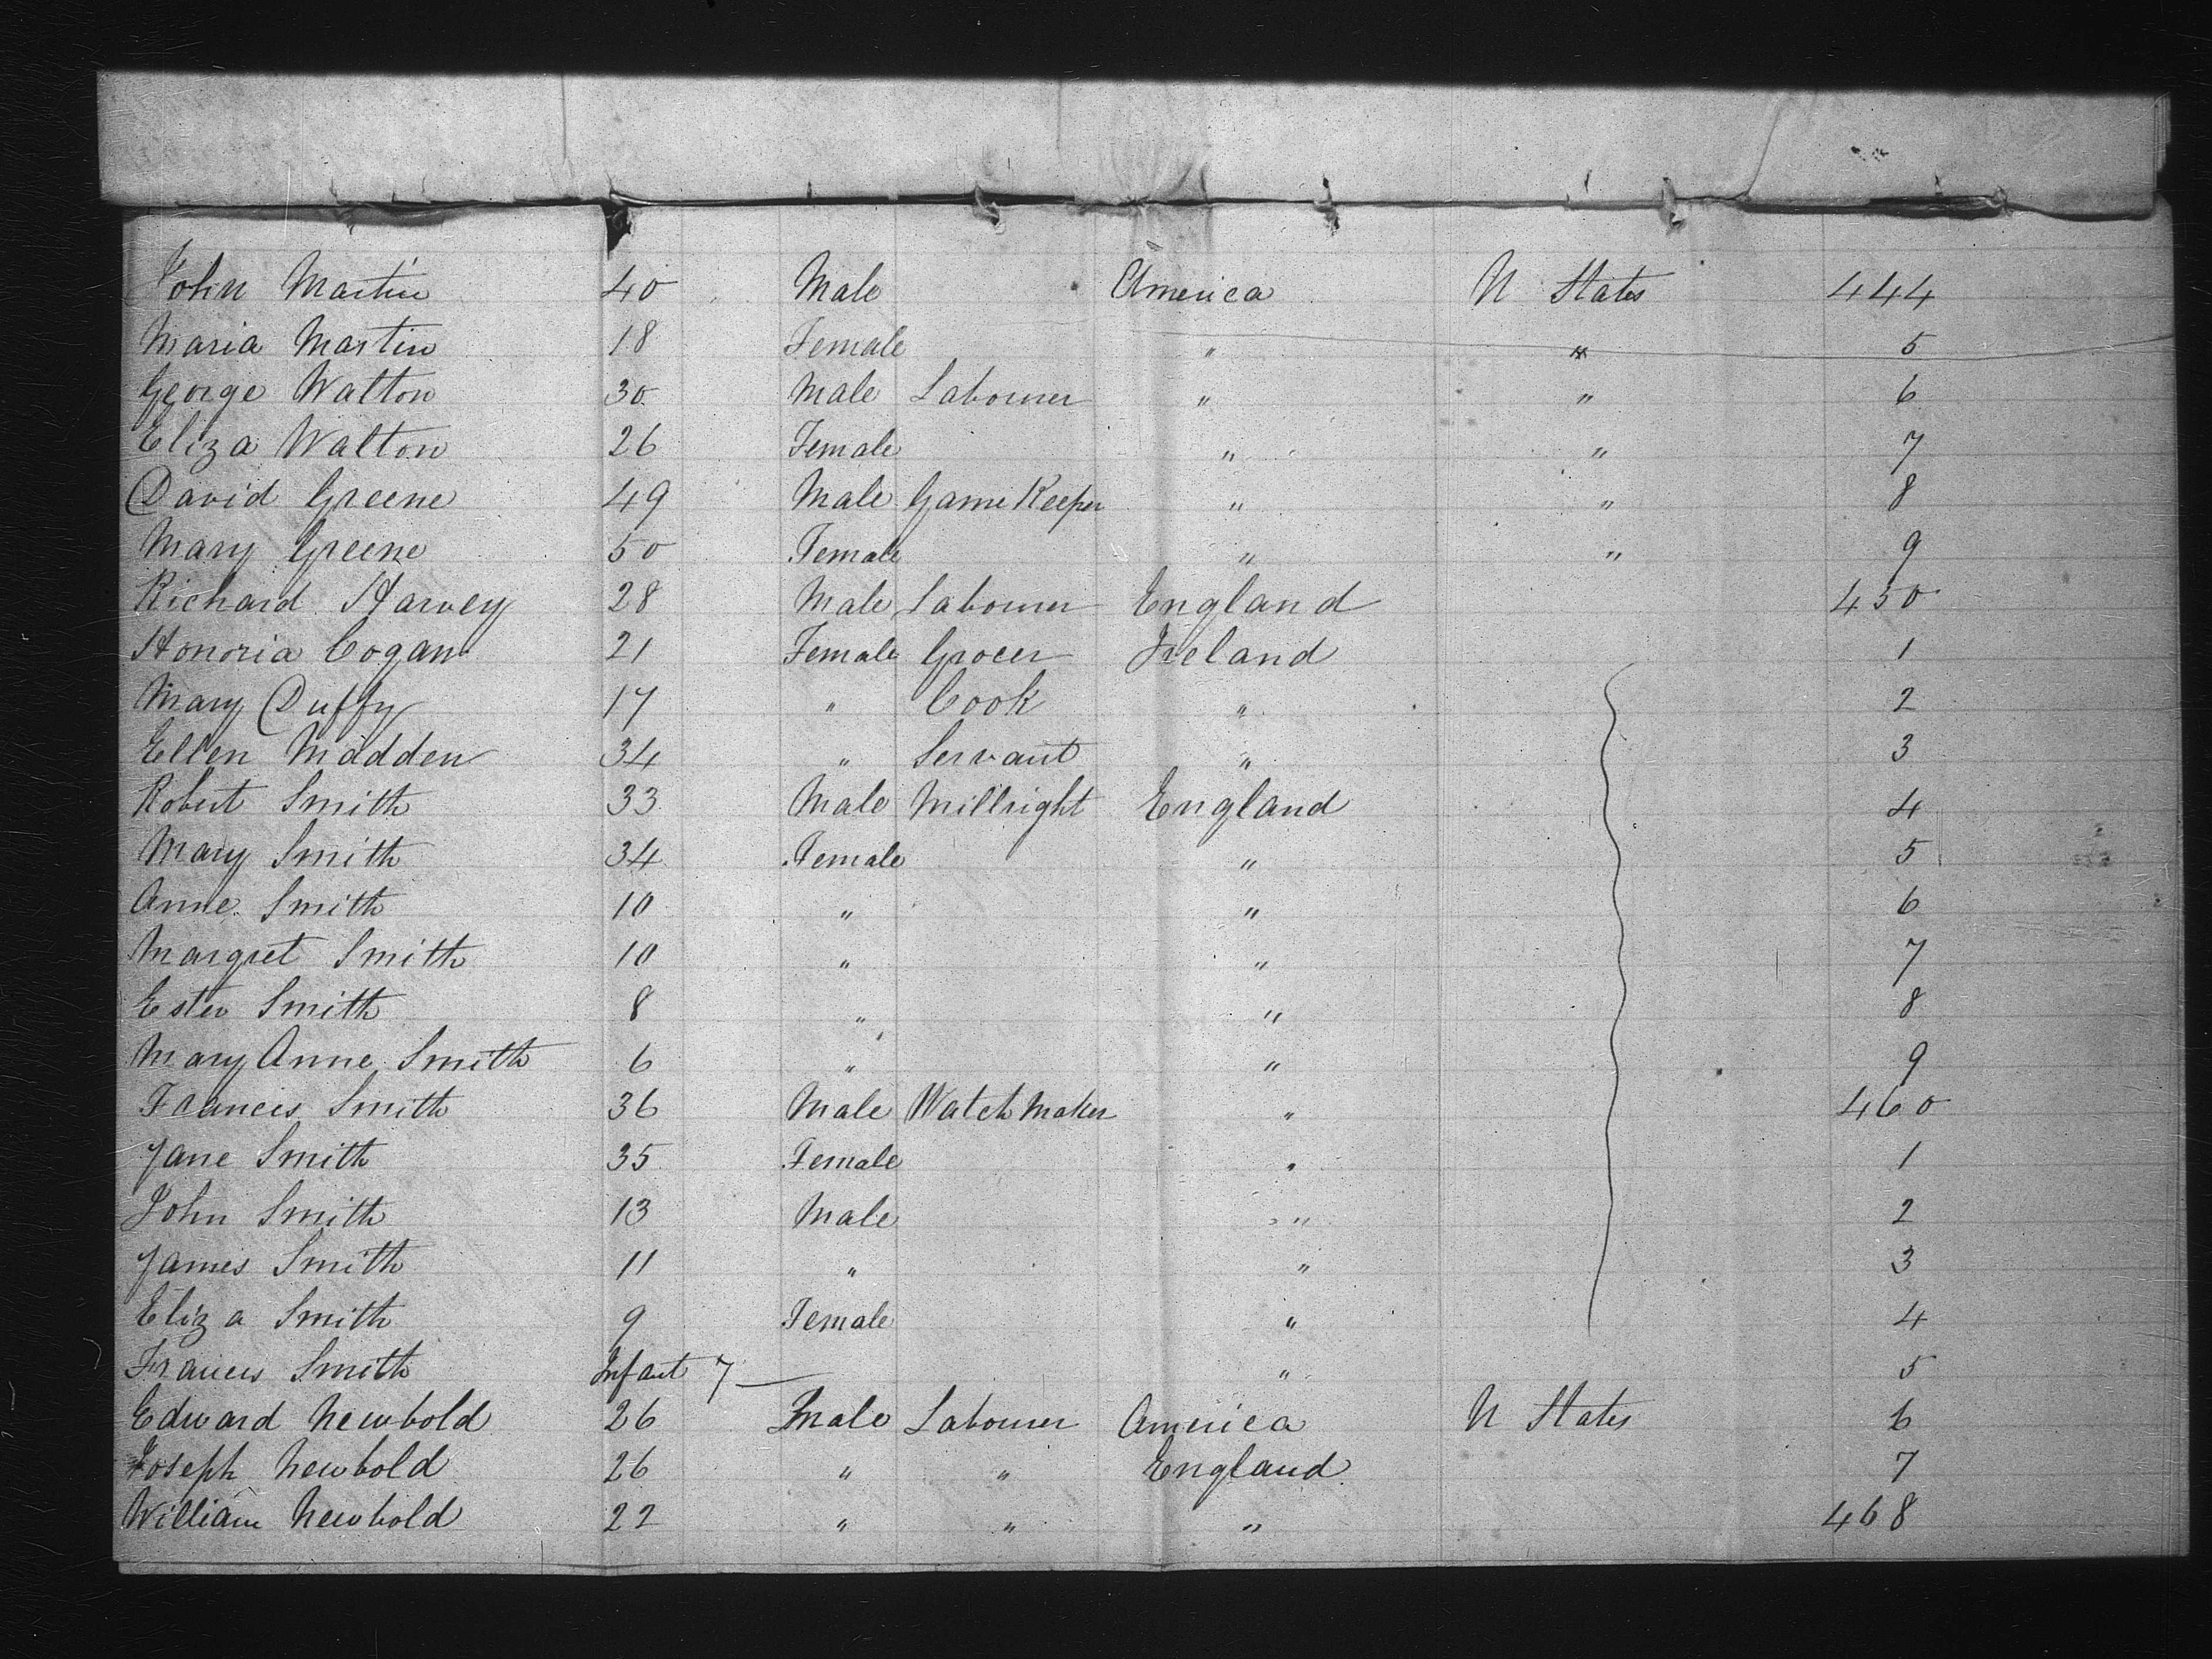 John Martin 40 Male America U States 444
Maria Martin 18 Female " " 5
George Walton 30 Male Labourer " " 6
Eliza Walton 26 Female " " 7
David Greene 49 Male Game Keeper " " 8
Mary Greene 50 Female " " 9
Richard Harvey 28 Male Labourer England 450
Honoria Cogan 21 Female Grocer Ireland 1
Mary Duffy 17 " Cook " 2
Ellen Madden 34 " Servant " 3
Robert Smith 33 Male Millright England 4
Mary Smith 34 Female " 5
Anne Smith 10 " " 6
Margret Smith 10 " " 7
Ester Smith 8 " " 8
Mary Anne Smith 6 " " 9
Francis Smith 36 Male Watch Maker " 460
Jane Smith 35 Female " 1
John Smith 13 Male " 2
James Smith 11 " " 3
Eliza Smith 9 Female " 4
Francis Smith Infant 7 — " 5
Edward Newbold 26 Male Labourer America U States 6
Joseph Newbold 26 " " England 7
William Newbold 22 " " " 468